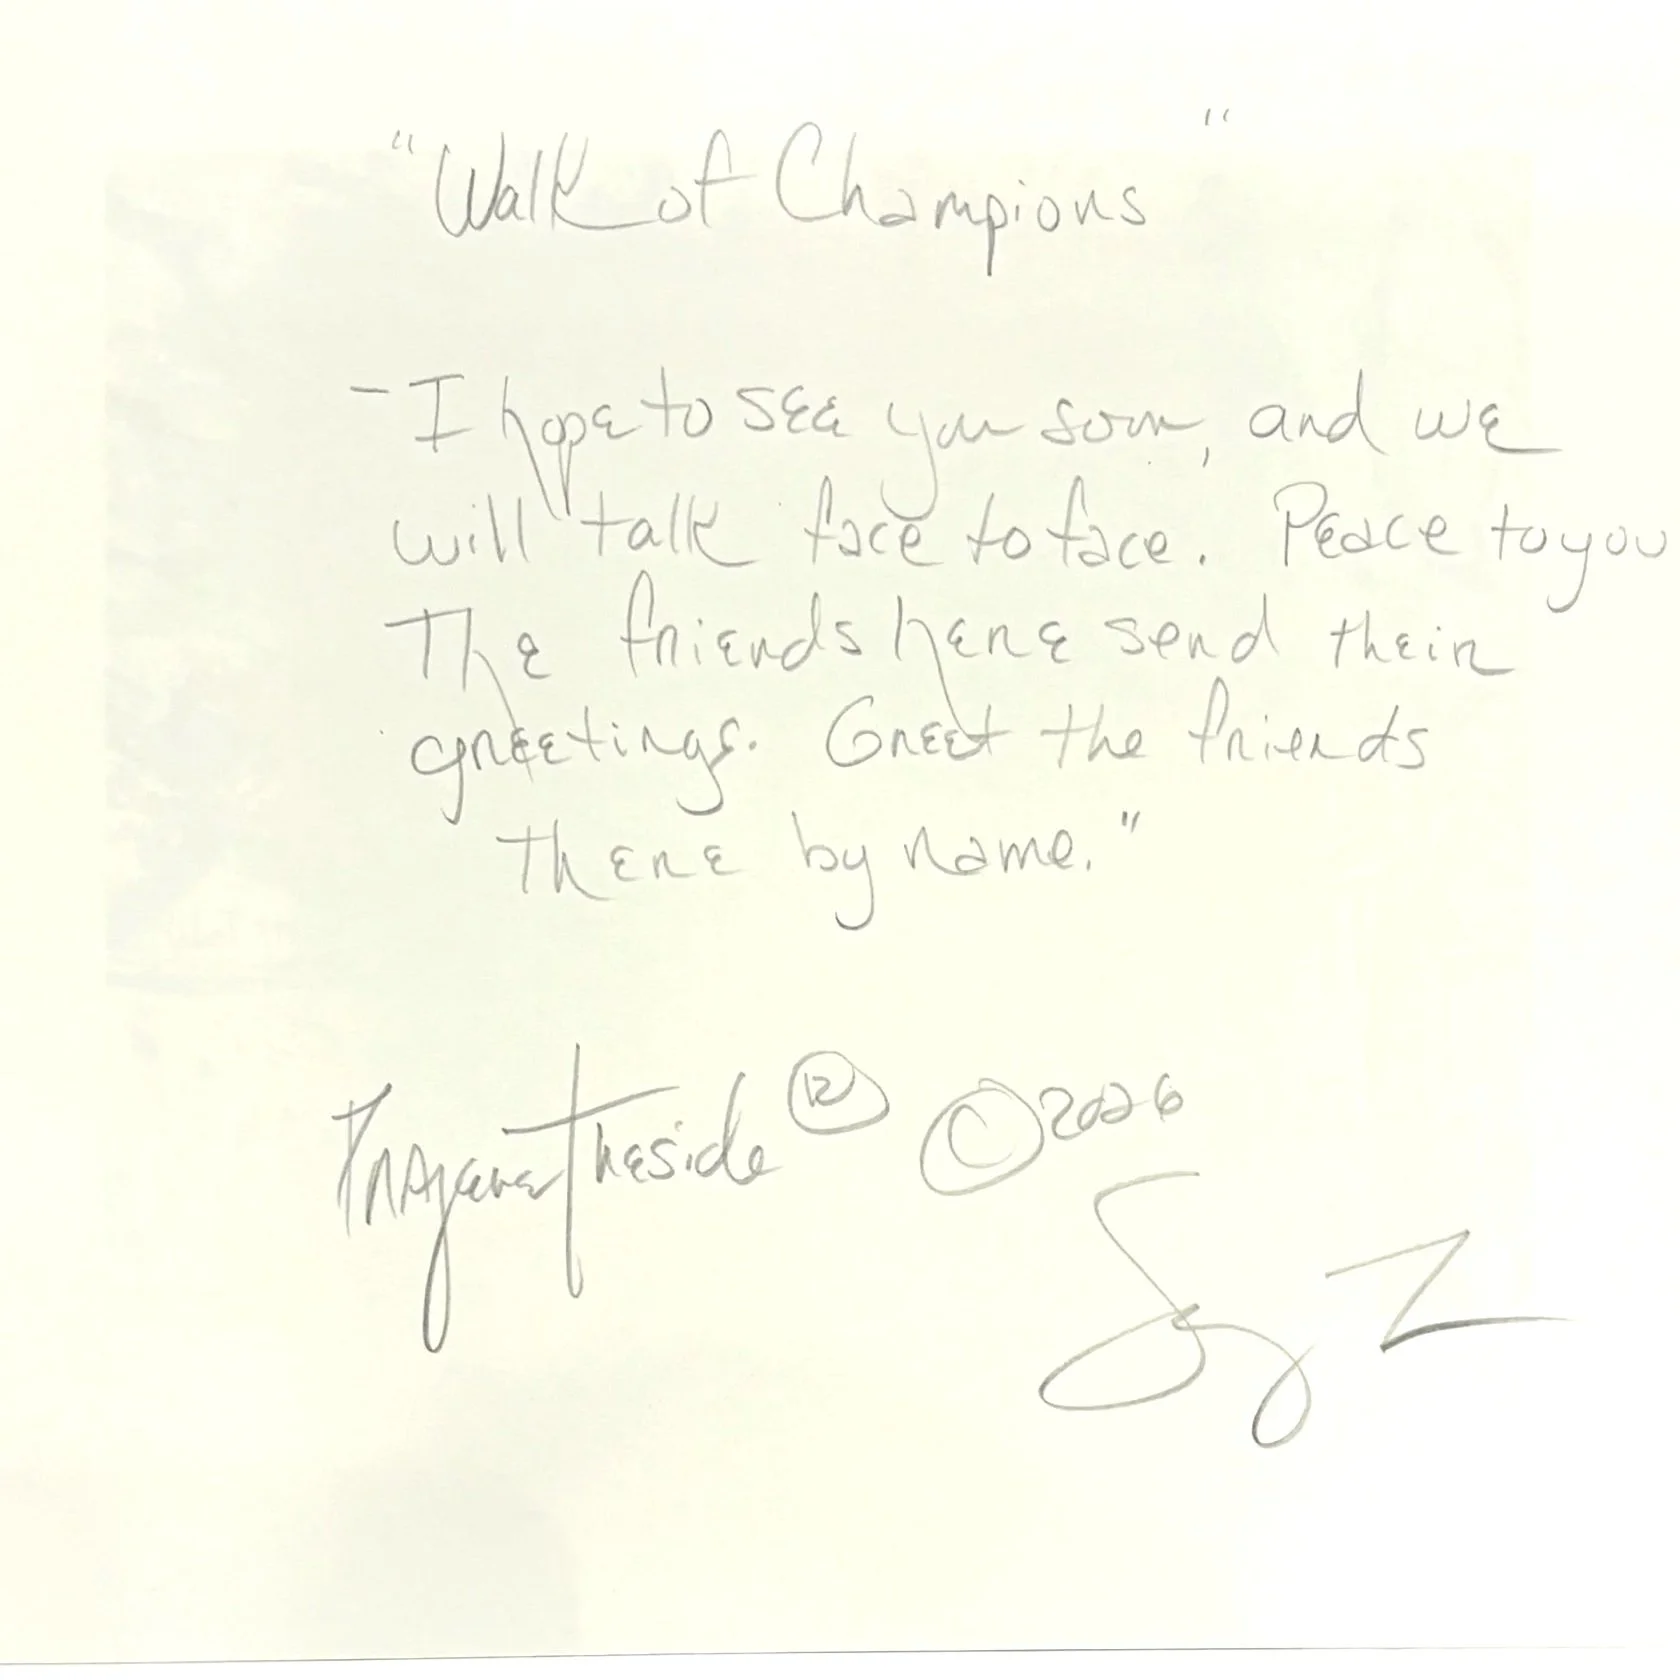 "Walk of Champions"
- I hope to see you soon, and we
will talk face to face. Peace to you
The friends here send their
greetings. Greet the friends
there by name."
® © 2026